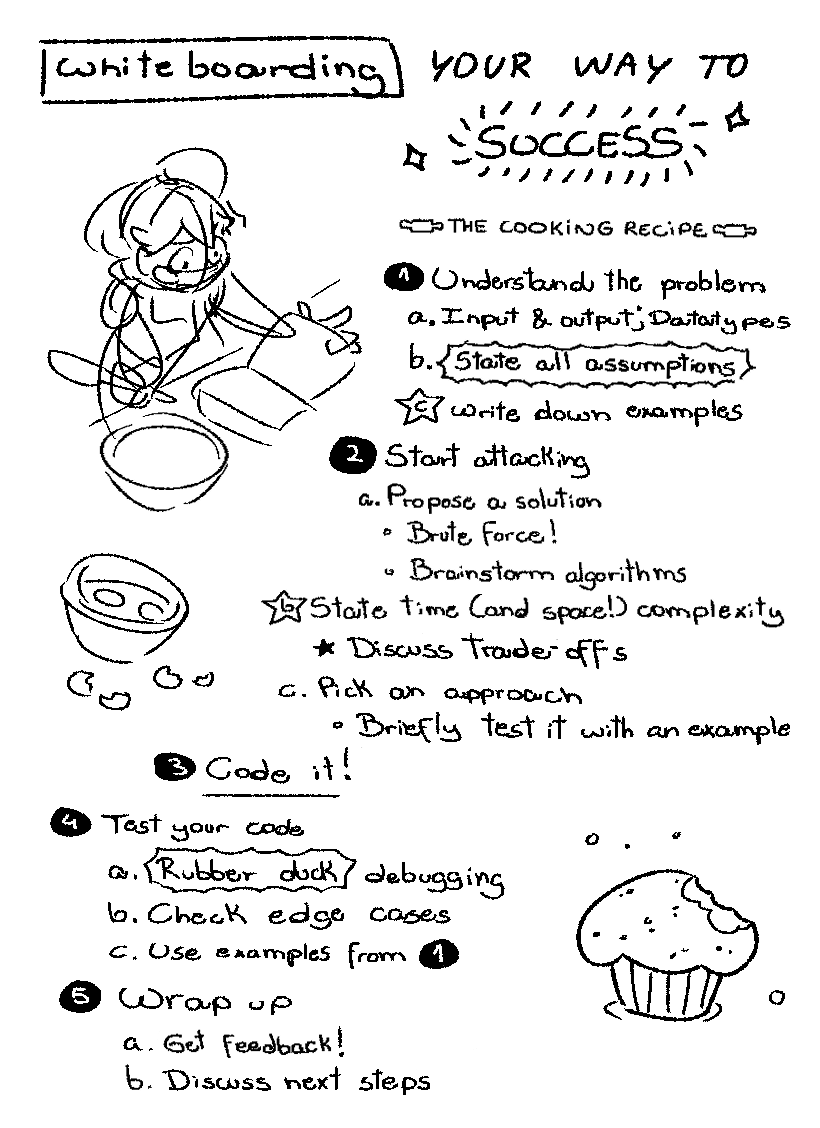 whiteboarding YOUR WAY TO
SUCCESS
THE COOKING RECIPE
1 Understand the problem
a. Input & output; Datatypes
b. State all assumptions
c write down examples
2 Start attacking
a. Propose a solution
• Brute Force!
• Brainstorm algorithms
b State time (and space!) complexity
★ Discuss trade-offs
c. Pick an approach
• Briefly test it with an example
3 Code it!
4 Test your code
a. Rubber duck debugging
b. Check edge cases
c. Use examples from 1
5 Wrap up
a. Get feedback!
b. Discuss next steps